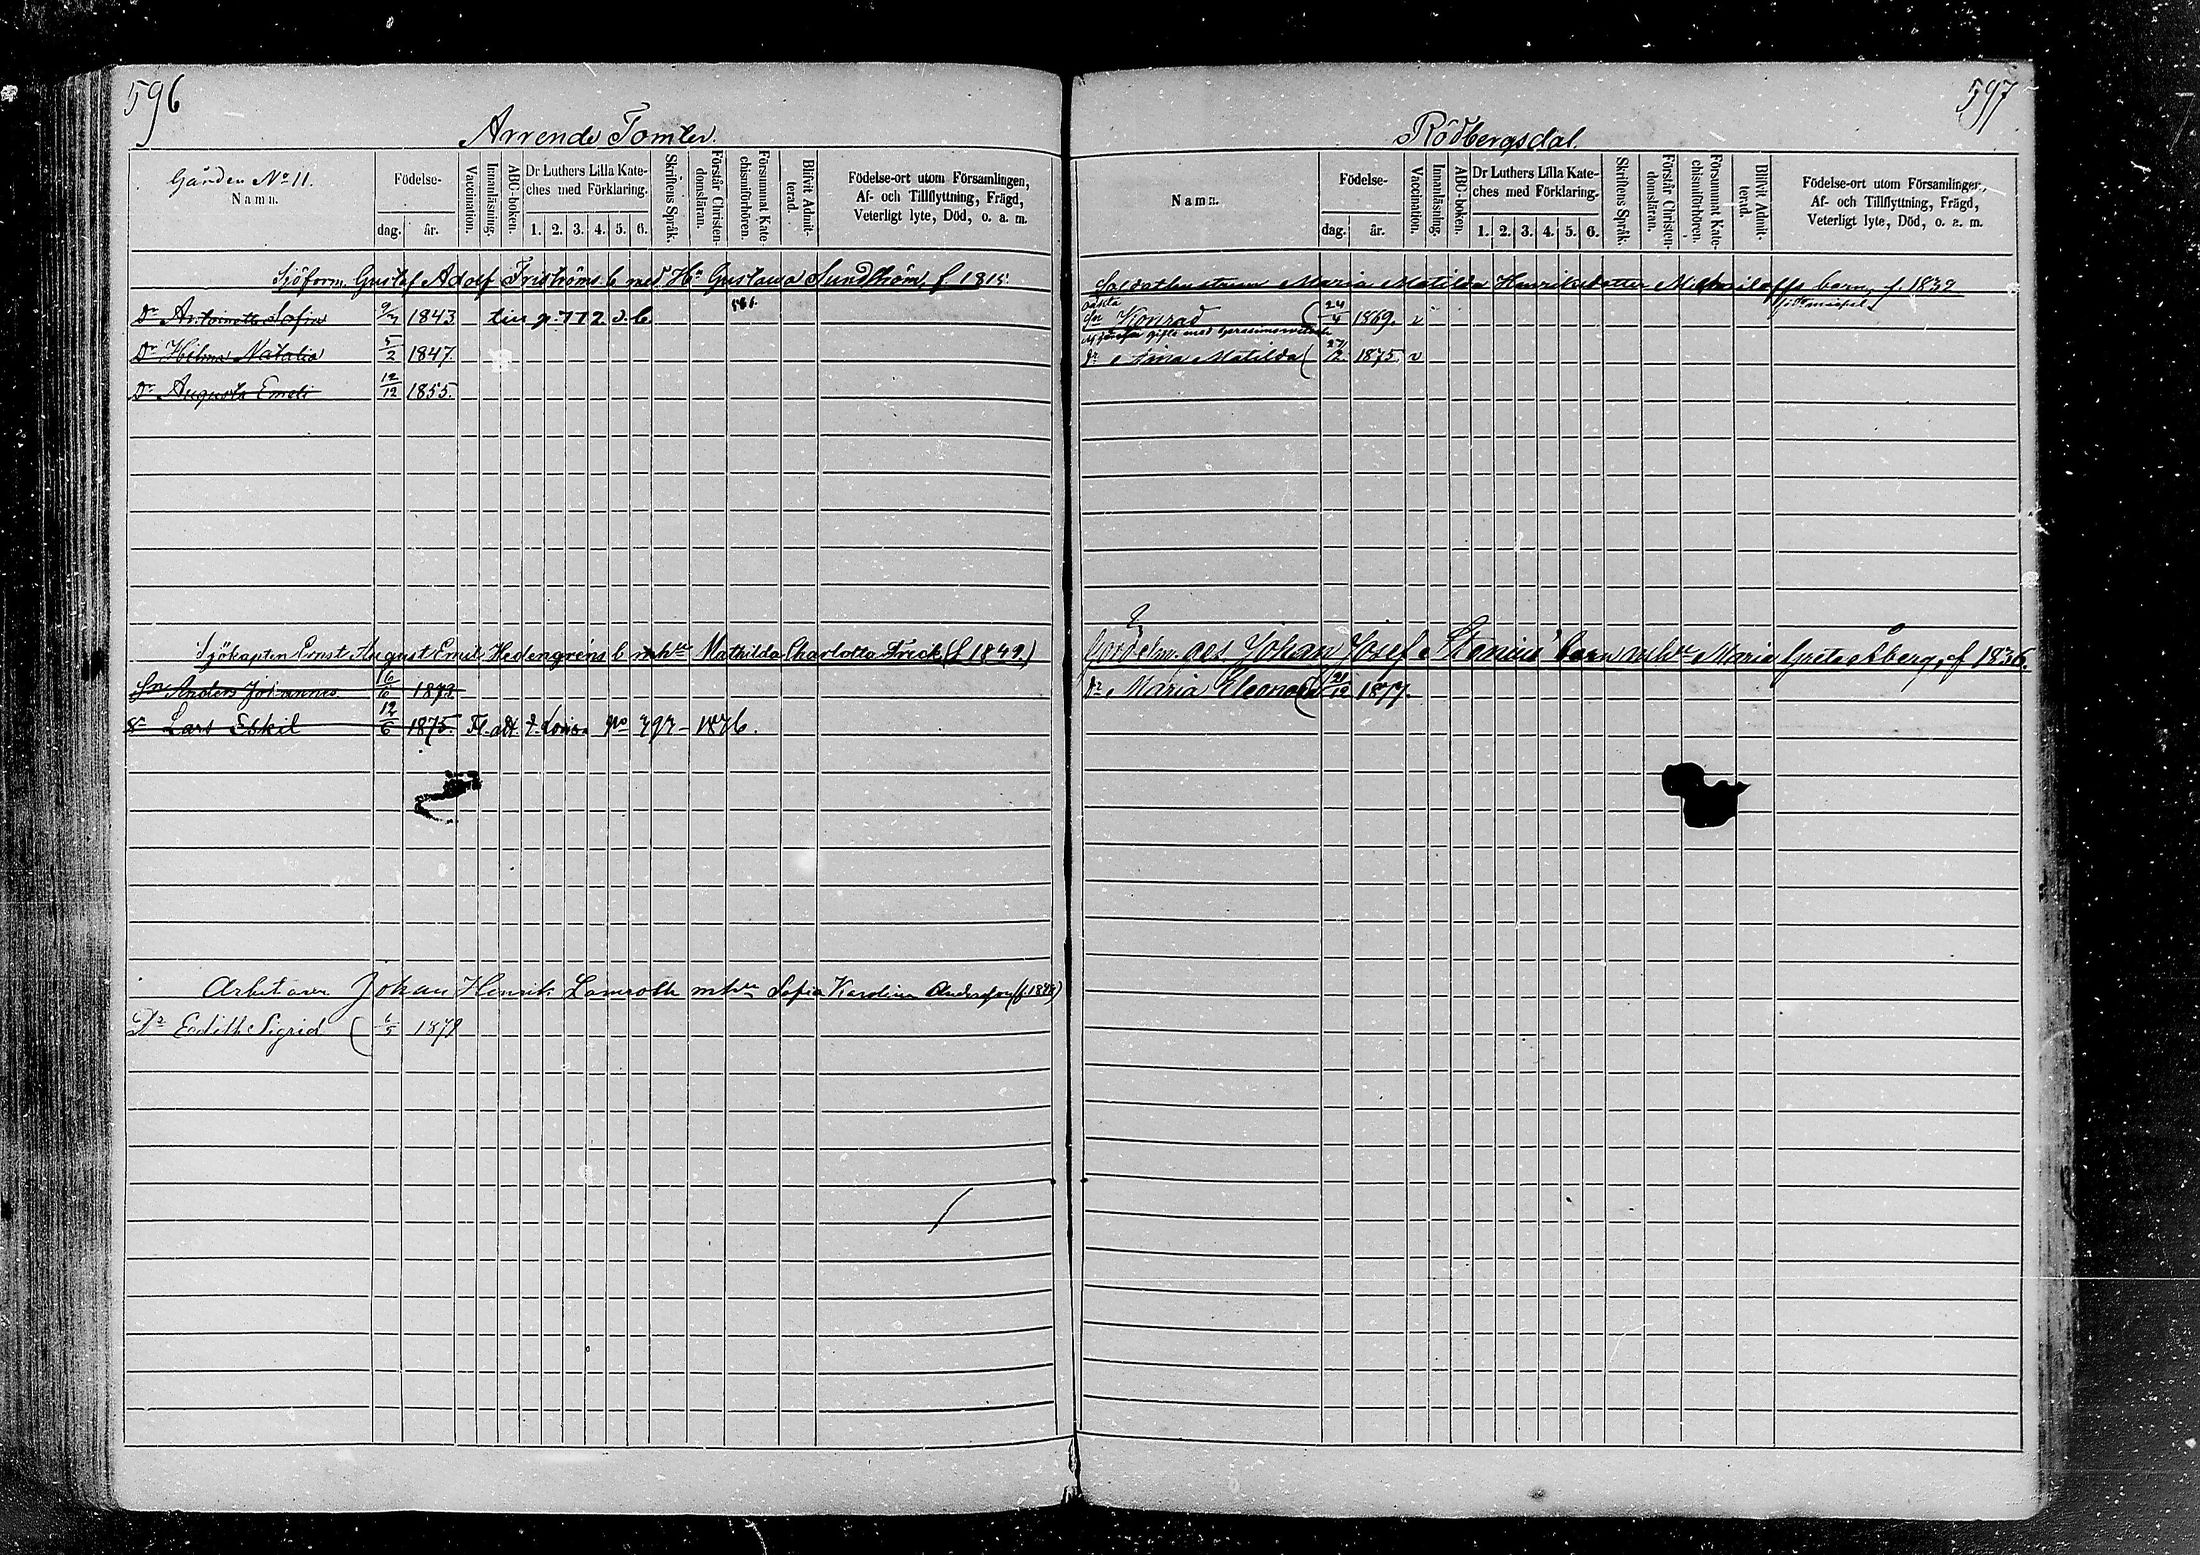 596
Arrende Tomter.
Gården No 11.
Namn.
Födelse-
dag.
år.
Vaccination.
Innanläsning.
ABC-boken.
Dr Luthers Lilla Kate-
ches med Förklaring.
1. 2. 3. 4. 5. 6.
Skriftens Språk.
Förstår Christen-
domsläran.
Försummat Kate-
chismiförhören.
Blifvit Admit-
terad.
Födelse-ort utom Församlingen,
Af- och Tillflyttning, Frägd,
Veterligt lyte, Död, o. a. m.
Sjöform. Gustaf Adolf Friströms b med Hu Gustava Sundström f 1815
Dr Antoinette Sofia 9/7 1843 tur p. 112 o. b. 561.
Dr Hilma Natalia 5/2 1847.
Dr Augusta Emeli 12/12 1855.
Sjökapten Ernst August Emil Hedengréns b mhu Mathilda Charlotta Frick (f. 1849.)
Sn Anders Johannes 16/6 1873
Sn Lars Eskil 12/6 1875. Fl. att. t. Lovisa No 397 - 1876.
Arbetaren Johan Henrik Lamroth mhu Sofia Karolina Andersson
Dr Edith Sigrid ( 6/5 1878
597
Rödbergsdal.
Namn.
Födelse-
dag.
år.
Vaccination.
Innanläsning.
ABC-boken.
Dr Luthers Lilla Kate-
ches med Förklaring.
1. 2. 3. 4. 5. 6.
Skriftens Språk.
Förstår Christen-
domsläran.
Försummat Kate-
chismiförhören.
Blifvit Admit-
terad.
Födelse-ort utom Församlingen,
Af- och Tillflyttning, Frägd,
Veterligt lyte, Död, o. a. m.
Soldatenkan Maria Matilda Henriksdotter Michailoffs barn, f 1832
oäkta
Sn Konrad ( 24/4 1869. v
gifte med
Dr Alma Matilda ( 27/2 1875. v
Johan Josef Stenius' barn mhu Maria Greta Åberg, f 1836.
Dr Maria Eleonora ( 21/12 1877.